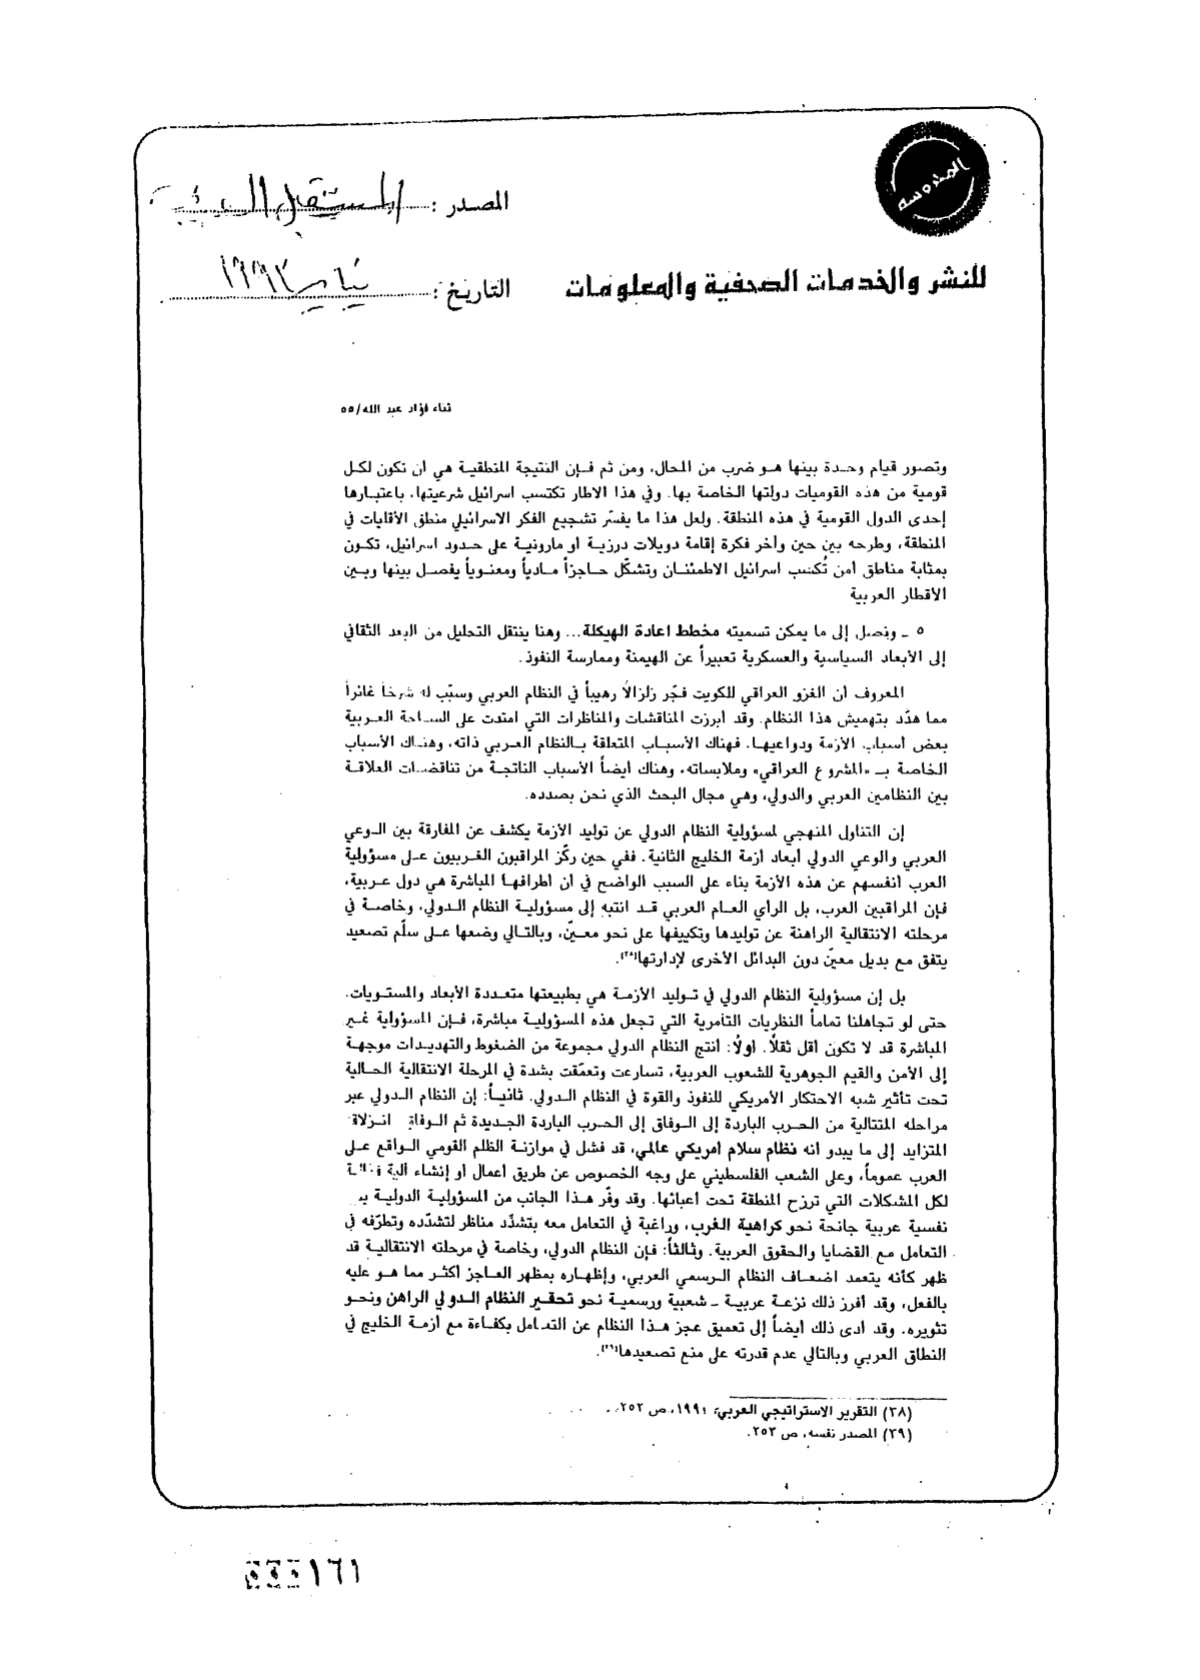 المحروسة
المصدر : المستقبل العربي
للنشر والخدمات الصحفية والمعلومات
التاريخ : يناير ١٩٩٢
ثناء فؤاد عبد الله/٥٥
وتصور قيام وحدة بينها هو ضرب من المحال، ومن ثم فإن النتيجة المنطقية هي ان تكون لكل
قومية من هذه القوميات دولتها الخاصة بها. وفي هذا الاطار تكتسب اسرائيل شرعيتها، باعتبارها
إحدى الدول القومية في هذه المنطقة. ولعل هذا ما يفسّر تشجيع الفكر الاسرائيلي منطق الأقليات في
المنطقة، وطرحه بين حين وآخر فكرة إقامة دويلات درزية أو مارونية على حدود اسرائيل، تكون
بمثابة مناطق أمن تُكسب اسرائيل الاطمئنان وتشكّل حاجزاً مادياً ومعنوياً يفصل بينها وبين
الأقطار العربية
٥ ـ ونصل إلى ما يمكن تسميته مخطط اعادة الهيكلة... وهنا ينتقل التحليل من البعد الثقافي
إلى الأبعاد السياسية والعسكرية تعبيراً عن الهيمنة وممارسة النفوذ.
المعروف ان الغزو العراقي للكويت فجّر زلزالاً رهيباً في النظام العربي وسبّب له شرخاً غائراً
مما هدّد بتهميش هذا النظام. وقد أبرزت المناقشات والمناظرات التي امتدت على الساحة العربية
بعض أسباب الأزمة ودواعيها. فهناك الأسباب المتعلقة بالنظام العربي ذاته، وهناك الأسباب
الخاصة بـ «المشروع العراقي» وملابساته، وهناك أيضاً الأسباب الناتجة من تناقضات العلاقة
بين النظامين العربي والدولي، وهي مجال البحث الذي نحن بصدده.
إن التناول المنهجي لمسؤولية النظام الدولي عن توليد الأزمة يكشف عن المفارقة بين الوعي
العربي والوعي الدولي أبعاد أزمة الخليج الثانية. ففي حين ركّز المراقبون الغربيون على مسؤولية
العرب أنفسهم عن هذه الأزمة بناء على السبب الواضح في أن أطرافها المباشرة هي دول عربية،
فإن المراقبين العرب، بل الرأي العام العربي قد انتبه إلى مسؤولية النظام الدولي، وخاصة في
مرحلته الانتقالية الراهنة عن توليدها وتكييفها على نحو معيّن، وبالتالي وضعها على سلّم تصعيد
يتفق مع بديل معيّن دون البدائل الأخرى لإدارتها(٣٨).
بل إن مسؤولية النظام الدولي في توليد الأزمة هي بطبيعتها متعددة الأبعاد والمستويات.
حتى لو تجاهلنا تماماً النظريات التآمرية التي تجعل هذه المسؤولية مباشرة، فإن المسؤولية غير
المباشرة قد لا تكون أقل ثقلاً. أولاً: أنتج النظام الدولي مجموعة من الضغوط والتهديدات موجهة
إلى الأمن والقيم الجوهرية للشعوب العربية، تسارعت وتعمّقت بشدة في المرحلة الانتقالية الحالية
تحت تأثير شبه الاحتكار الأمريكي للنفوذ والقوة في النظام الدولي. ثانياً: إن النظام الدولي عبر
مراحله المتتالية من الحرب الباردة إلى الوفاق إلى الحرب الباردة الجديدة ثم الوفاق انزلاقه
المتزايد إلى ما يبدو أنه نظام سلام أمريكي عالمي، قد فشل في موازنة الظلم القومي الواقع على
العرب عموماً، وعلى الشعب الفلسطيني على وجه الخصوص عن طريق أعمال أو إنشاء آلية
لكل المشكلات التي ترزح المنطقة تحت أعبائها. وقد وفّر هذا الجانب من المسؤولية الدولية
نفسية عربية جانحة نحو كراهية الغرب، وراغبة في التعامل معه بتشدّد مناظر لتشدّده وتطرّفه في
التعامل مع القضايا والحقوق العربية. وثالثاً: فإن النظام الدولي، وخاصة في مرحلته الانتقالية قد
ظهر كأنه يتعمد اضعاف النظام الرسمي العربي، وإظهاره بمظهر العاجز أكثر مما هو عليه
بالفعل، وقد أفرز ذلك نزعة عربية ـ شعبية ورسمية نحو تحقير النظام الدولي الراهن ونحو
تثويره. وقد أدى ذلك أيضاً إلى تعميق عجز هذا النظام عن التعامل بكفاءة مع أزمة الخليج في
النطاق العربي وبالتالي عدم قدرته على منع تصعيدها(٣٩).
(٣٨) التقرير الاستراتيجي العربي، ١٩٩٠، ص ٢٥٢.
(٣٩) المصدر نفسه، ص ٢٥٣.
١٦١